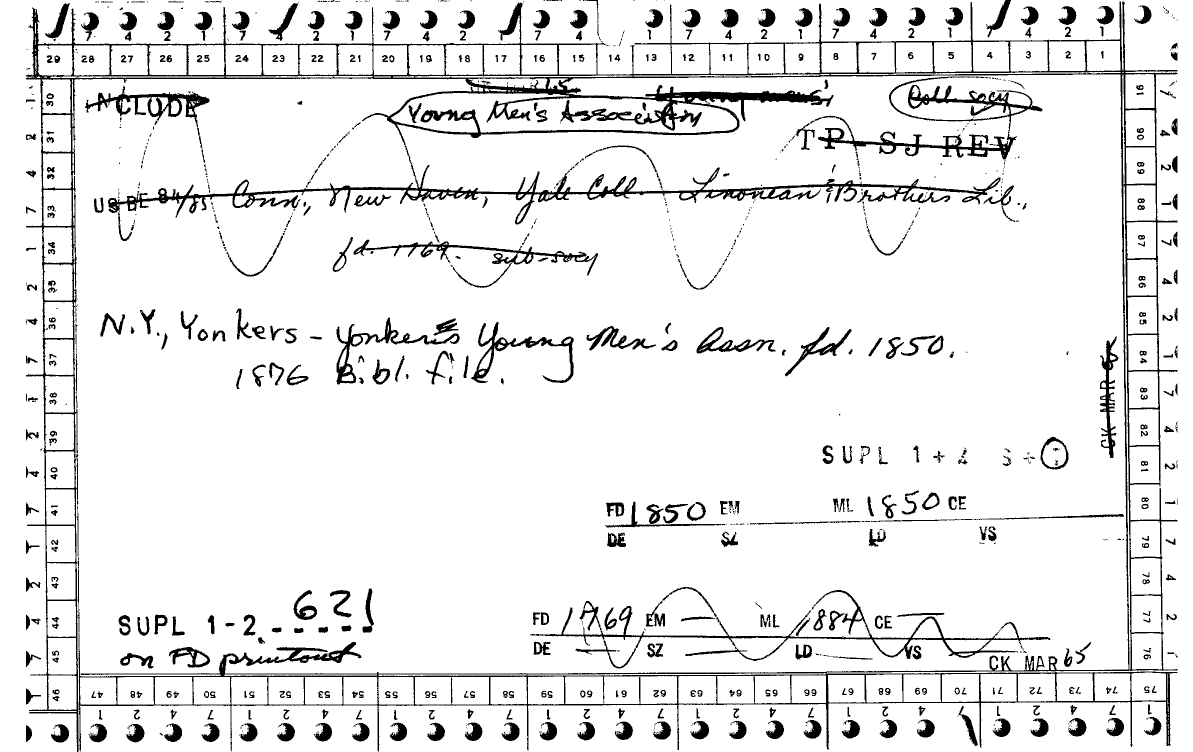 7 4 2 1 7 4 2 1 7 4 2 1 7 4 2 1 7 4 2 1 7 4 2 1 7 4 2 1
29 28 27 26 25 24 23 22 21 20 19 18 17 16 15 14 13 12 11 10 9 8 7 6 5 4 3 2 1
MAR 65 Young mens' Coll-socy
INCLUDE Young Men's Association
TP-SJ REV
US BE 84/85 Conn., New Haven, Yale Coll. Linonean & Brothers Lib.,
fd. 1769. sub-socy
N.Y., Yonkers - Yonkers Young Men's Assn. fd. 1850.
1876 Bibl. file.
CK MAR
SUPL 1 +
FD 1850 EM ML 1850 CE
DE SZ LD VS
621
SUPL 1-2
on FD printout
FD 1769 EM — ML 1884 CE —
DE — SZ — LD — VS
CK MAR 65
30 31 32 33 34 35 36 37 38 39 40 41 42 43 44 45 46
91 90 89 88 87 86 85 84 83 82 81 80 79 78 77 76 75
47 48 49 50 51 52 53 54 55 56 57 58 59 60 61 62 63 64 65 66 67 68 69 70 71 72 73 74
1 2 4 7 1 2 4 7 1 2 4 7 1 2 4 7 1 2 4 7 1 2 4 7 1 2 4 7